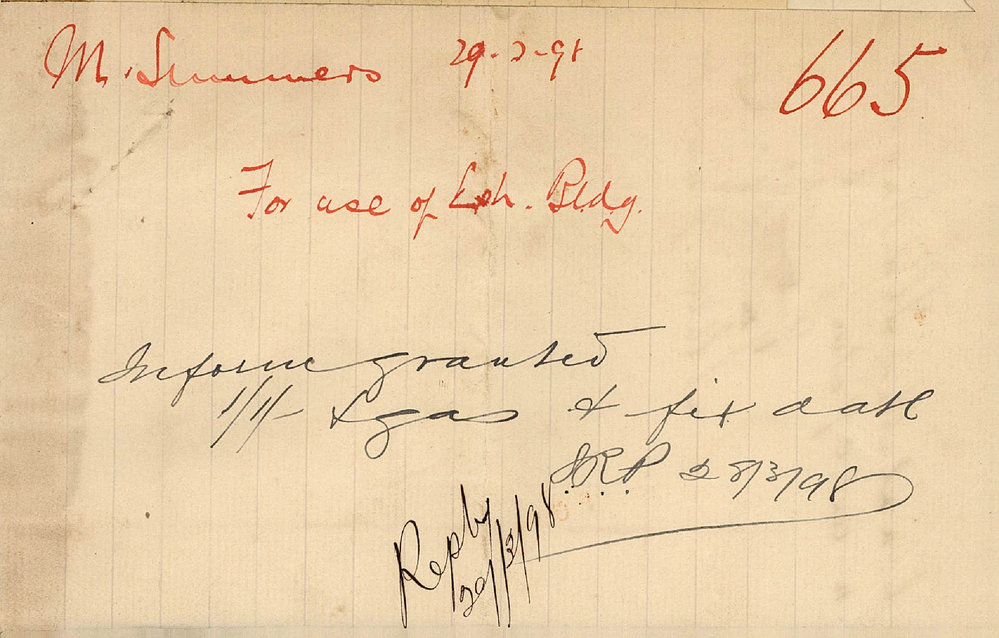 M. Summers 29-3-98 665
For use of Exh. Bldg.
Inform granted
1/1/- & gas & fix date
J.R.P 28/3/98
Reply
29/3/98